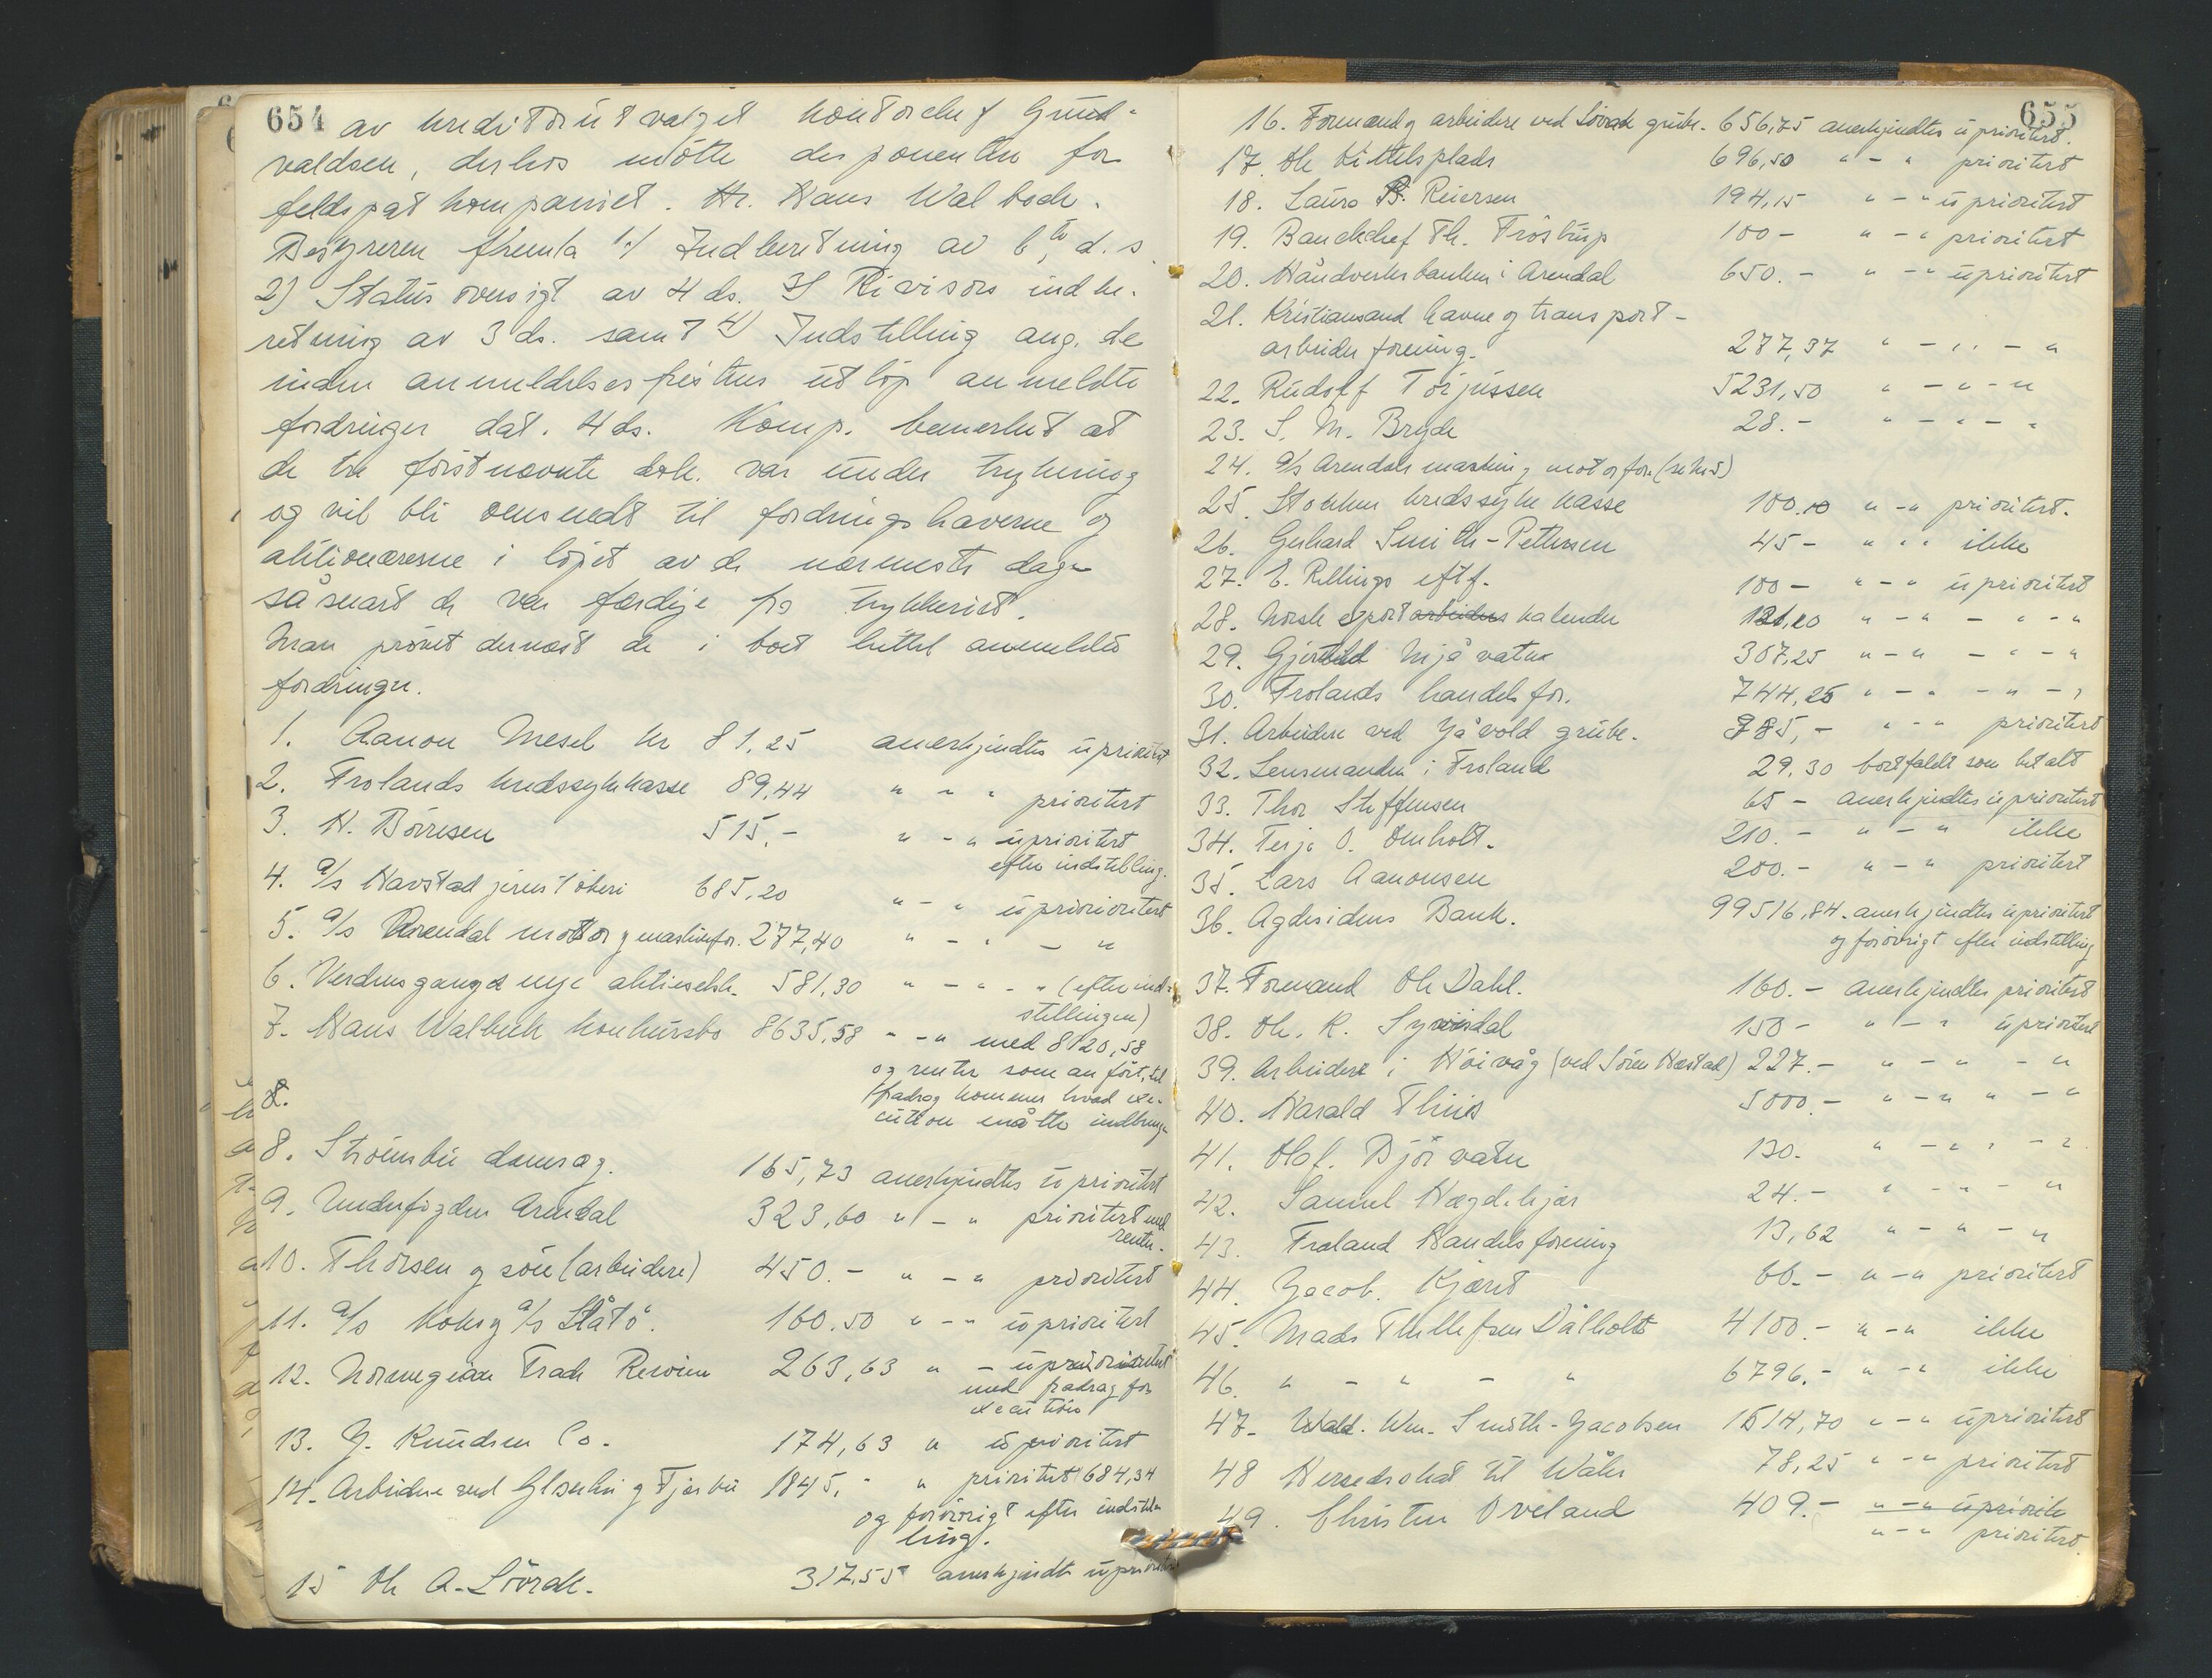 654
av kreditorutvalget kontorchef Gund-
valdsen, derhos mötte disponenten for
feldspatkompaniet. Hr. Hans Walbeck.
Bestyreren fremla 1) Indberetning av 6te d.s.
2) Status oversigt av 4 ds. 3) Revisors indbe-
retning av 3 ds. samt 4) Indstilling ang. de
inden anmeldelsesfristens utlöp anmeldte
fordringer dat. 4 ds. Komp. bemerket at
de tre förstnævnte dok. var under trykning
og vil bli oversendt til fordringshaverne og
aktionærerne i löpet av de nærmeste dage
såsnart de var færdige fra trykkeriet.
Man prövet dernæst de i boet hittil anmeldte
fordringer.
1. Aanon Mesel kr 81,25 anerkjendtes uprioritert
2. Frolands kredssykekasse 89,44 " - " prioritert
3. H. Börresen 515,- " - " uprioritert
efter indstilling.
4. a/s Havstad jernstöberi 685,20 " - " upriorioritert
5. a/s Arendal motor og maskinfor. 287,40 " - " - "
6. Verdensgangs nye aktieselsk. 581,30 " - " - " (efter ind-
stillingen)
7. Hans Walbeck konkursbo 8635,58 " - " med 8120,58
og renter som anfört, til
fradrag kommer hvad exe-
cution måtte indbringe
8.
8. Strömsbu damsag. 165,73 anerkjendtes uprioritert
9. Underfogden Arendal 323,60 " - " prioritert med
renter.
10. Thorsen og sön (arbeidere) 450.- " - " prioritert
11. a/s Koks og a/s Slåtö. 160.50 " - " uprioritert
12. Norwegian Trade Review 263,63 " - uprioritert
med fradrag for
execution
13. G. Knudsen Co. 174,63 " uprioritert
14. Arbeidere ved Gloserhei og Tjörbu 1845,- " prioritert 684,34
og forövrigt efter indstil-
ling.
15 Ole A. Lövrak. 317.55 anerkjendt uprioritert
655
16. Formand og arbeidere ved Lövrak grube. 656,75 anerkjendtes uprioritert.
17. Ole Vittelsplads 696,50 " - " prioritert
18. Laura B. Reiersen 194,15 " - " uprioritert
19. Bankchef Th. Fröstrup 100 - " - " prioritert
20. Håndverkerbanken i Arendal 650.- " - " uprioritert
21. Kristiansand havne og transport-
arbeiderforening. 287,37 " - " - "
22. Rudolf Torjussen 5231,50 " - " - "
23. S. M. Bryde 28.- " - " - "
24. a/s Arendals maskin og motorfor. (se nr 5)
25. Stokken kredssyke kasse 100.10 " - " prioritert.
26. Gerhard Smith-Petersen 45 - " " ikke
27. E. Rellings eftf. 100 - " - " uprioritert
28. Norsk export arbeiders kalender 121.20 " - " - " - "
29. Gjeruld Mjåvatn 307,25 " - " - " - "
30. Frolands handelsfor. 744,25 " - " - " - "
31. Arbeidere ved Håvold grube. 785,- " - " prioritert
32. Lensmanden i Froland 29.30 bortfaldt som betalt
33. Thor Steffensen 65 - anerkjendtes uprioritert
34. Terje O. Omholt. 210.- " - " ikke
35. Lars Aanonsen 200.- " - " prioritert
36. Agdesidens Bank. 99516,84. anerkjendtes uprioritert
og forövrigt efter indstilling
37. Formand Ole Dahl. 160.- anerkjendtes prioritert
38. Ole. K. Syvisdal 150 - " - " uprioritert
39. Arbeidere i Höivåg (ved Sören Næstad) 227.- " - " - "
40. Harald Thiis 5000.- " - " " - "
41. Olaf. Björvatn 130. " - " - "
42. Samuel Hægdekjær 24.- " - " - "
43. Froland Handelsforening 13,62 " - " - "
44. Jacob. Kjöret 66.- " - " prioritert
45. Mads Thellefsen Dålholt 4100.- " - " ikke
46. " - " - " 6796.- " - " ikke
47. Wald. Wm. Smith-Jacobsen 1514,70 " - " uprioritert
48 Herredsohat til Wåler 78,25 " - " prioritert
49. Christen Oveland 409.- " - " upriorite
" - " prioritert.